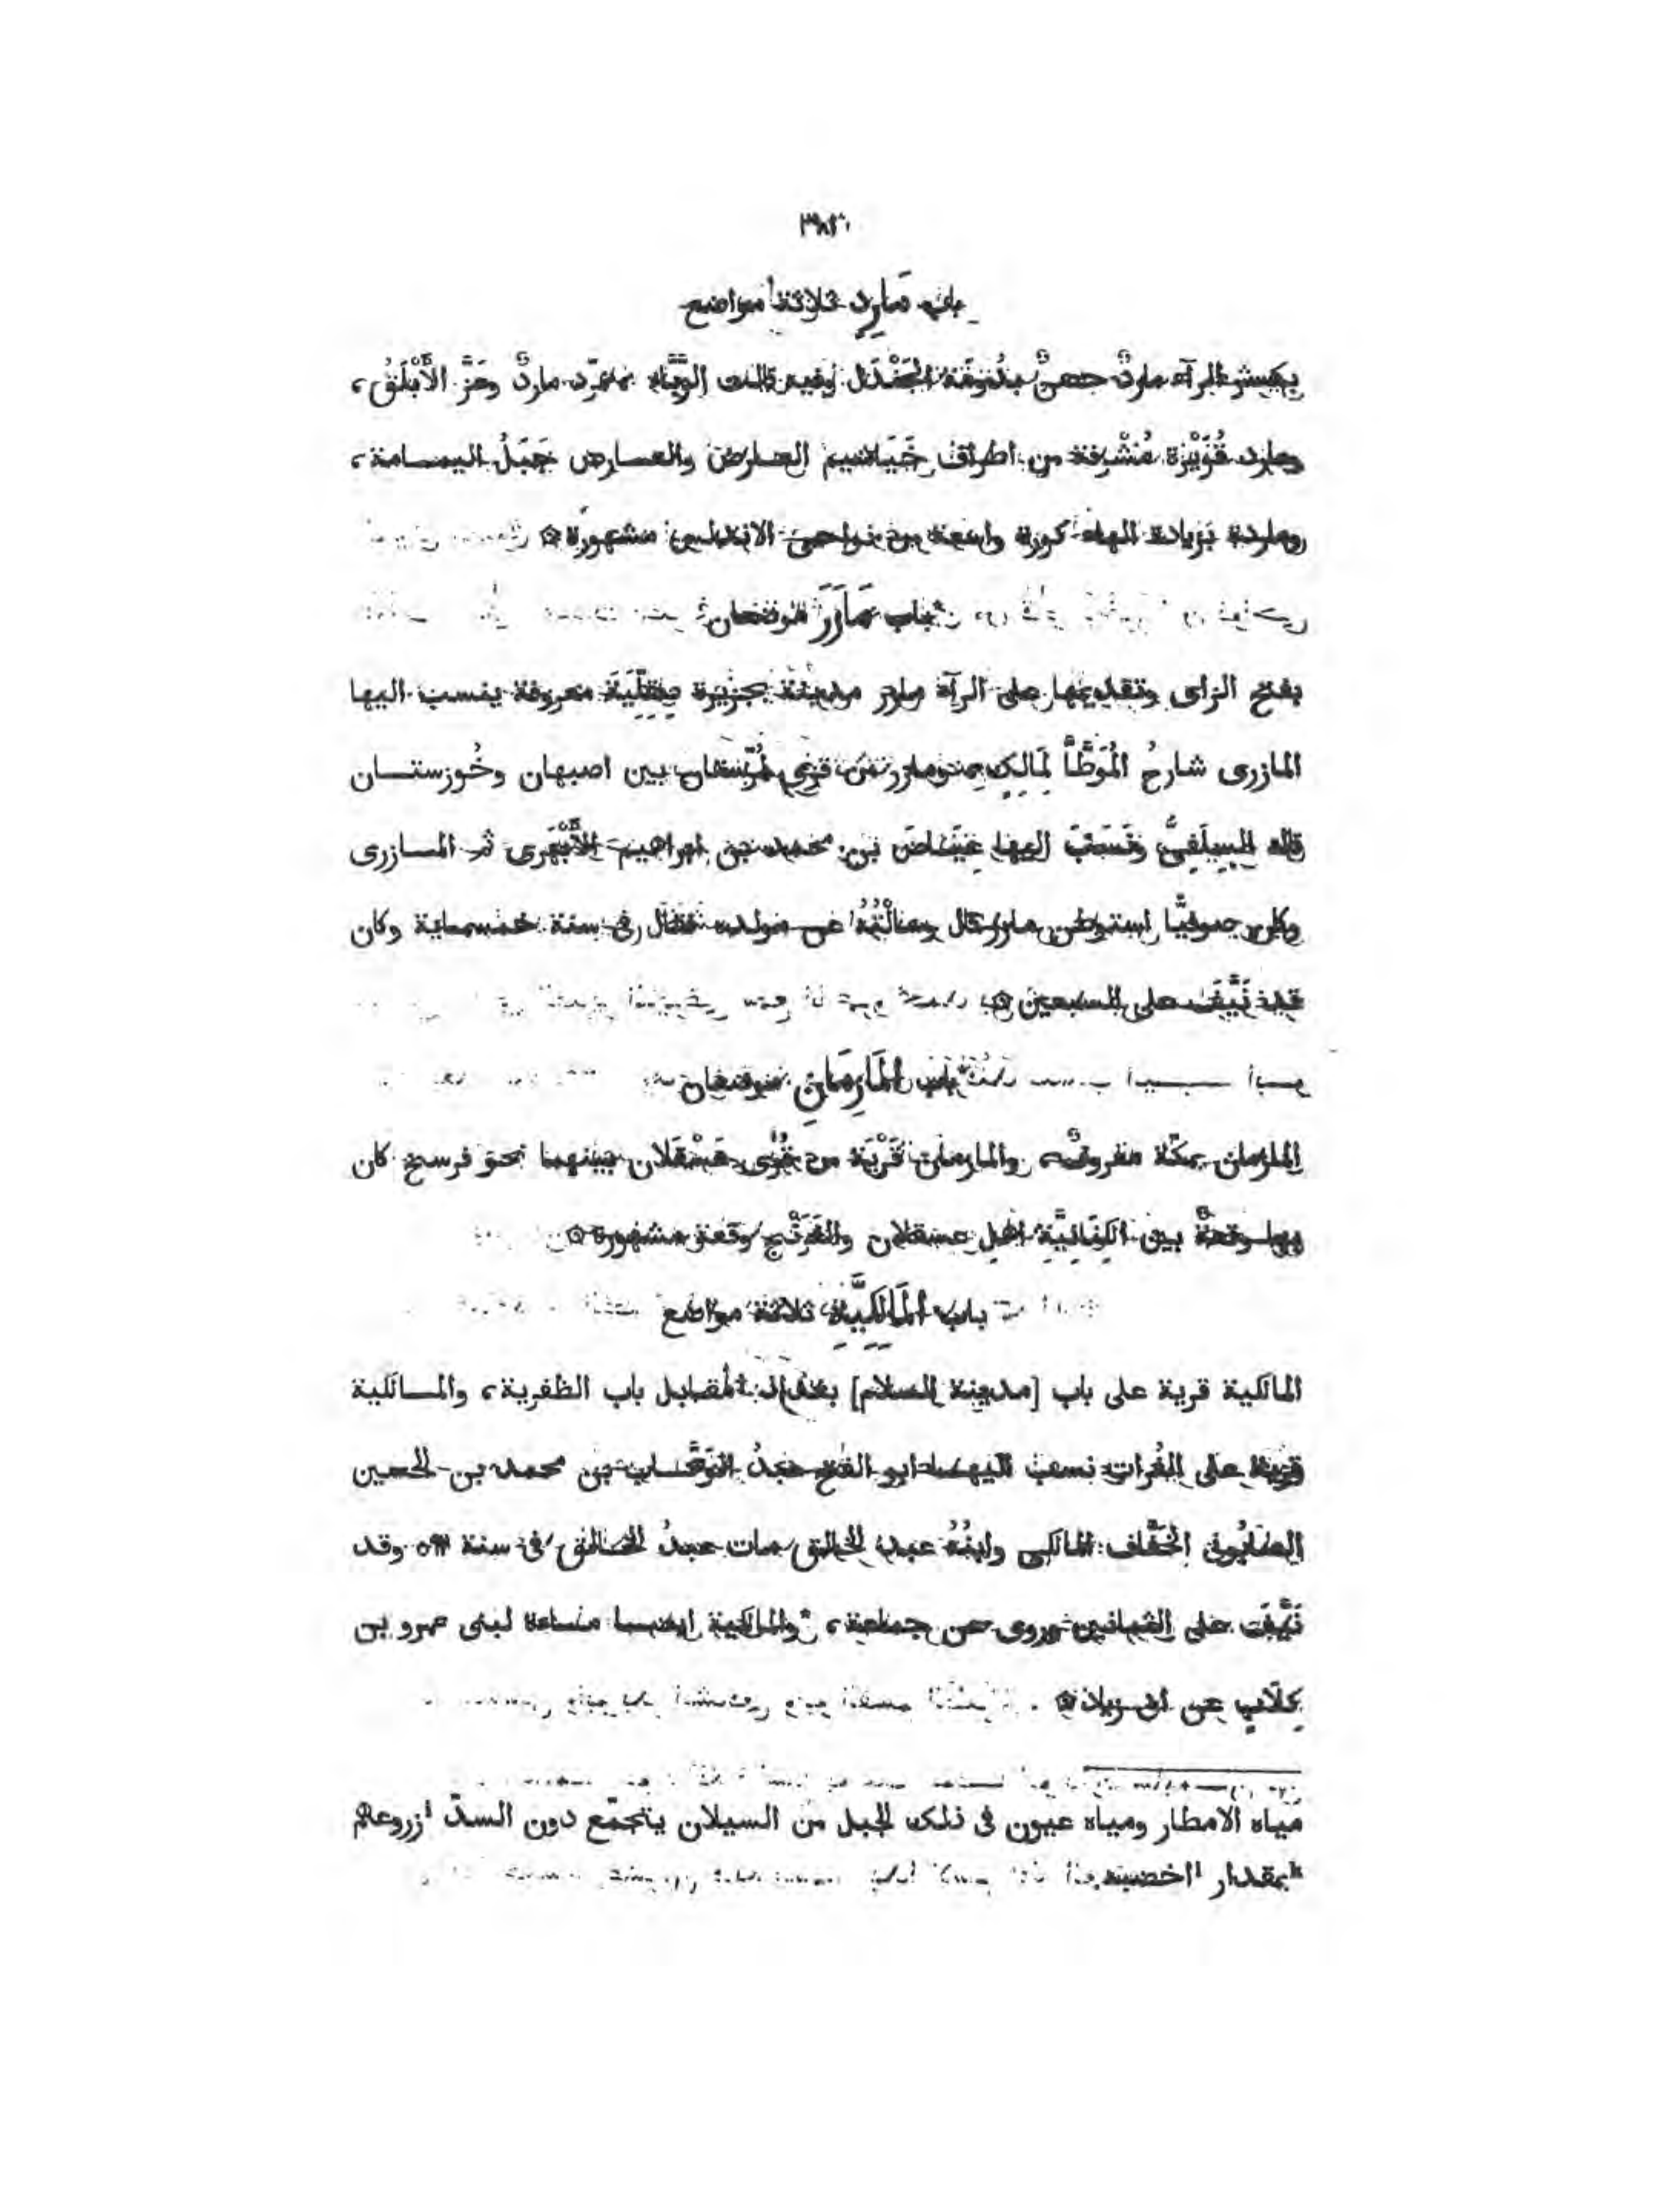 ٣٨٢
باب مَارِدٍ ثلاثة مواضع
بكسر الرآء ماردٌ حصنٌ بدُومَة الجَنْدَل وفيه قالت الزَّبَّاء تمرّد ماردٌ وعَزَّ الأَبْلَقُ،
ومارد قُوَيْرة مُشْرِفة من اطراف خَيَاشيم العارض والعارض جَبَلُ اليمامة،
وماردة بزيادة الهاء كورة واسعة من نواحى الاندلس مشهورة۞
باب مَازَرَ موضعان
بفتح الزاى وتقديمها على الرآء مازر مدينة بجزيرة صِقِلِّيَةَ معروفة ينسب اليها
المازرى شارحُ المُوَطَّأ لِمَالِكٍ، ومازر من قرى لُرِّستان بين اصبهان وخُوزستان
قاله السِلَفِىُّ ونَسَبَ اليها عِيَاضَ بن محمد بن ابراهيم الأَبْهَرى ثم المازرى
وكان صوفيًّا استوطن مازر قال وسالْتُهُ عن مولده فقال فى سنة خمسماية وكان
قد نَيَّفَ على السبعين۞
باب المَأْزِمَانِ موضعان
المازمان بمكّة معروفٌ، والمازمان قَرْيَة من قُرَى عَسْقَلان بينهما نحو فرسخ كان
بها وقعةٌ بين الكِنَانِيَّةِ اهلِ عسقلان والفَرَنْج وقعة مشهورة۞
باب المَالِكِيَّةِ ثلاثة مواضع
المالكية قرية على باب [مدينة السلام] بغداد مقابل باب الظفرية، والمالكية
قرية على الفُرات نسب اليها ابو الفتح عبدُ الوَهَّاب بن محمد بن الحسين
الصابُونى الخَفَّاف المالكى وابنُهُ عبد الخالق مات عبدُ الخالق فى سنة وقد
نَيَّفَ على الثمانين وروى عن جماعة، والمالكية ايضا مساءة لبنى عمرو بن
كِلَابٍ عن ابى زياد۞
مياه الامطار ومياه عيون فى ذلك الجبل من السيلان يتجمّع دون السدّ زروعهم
بمقدار